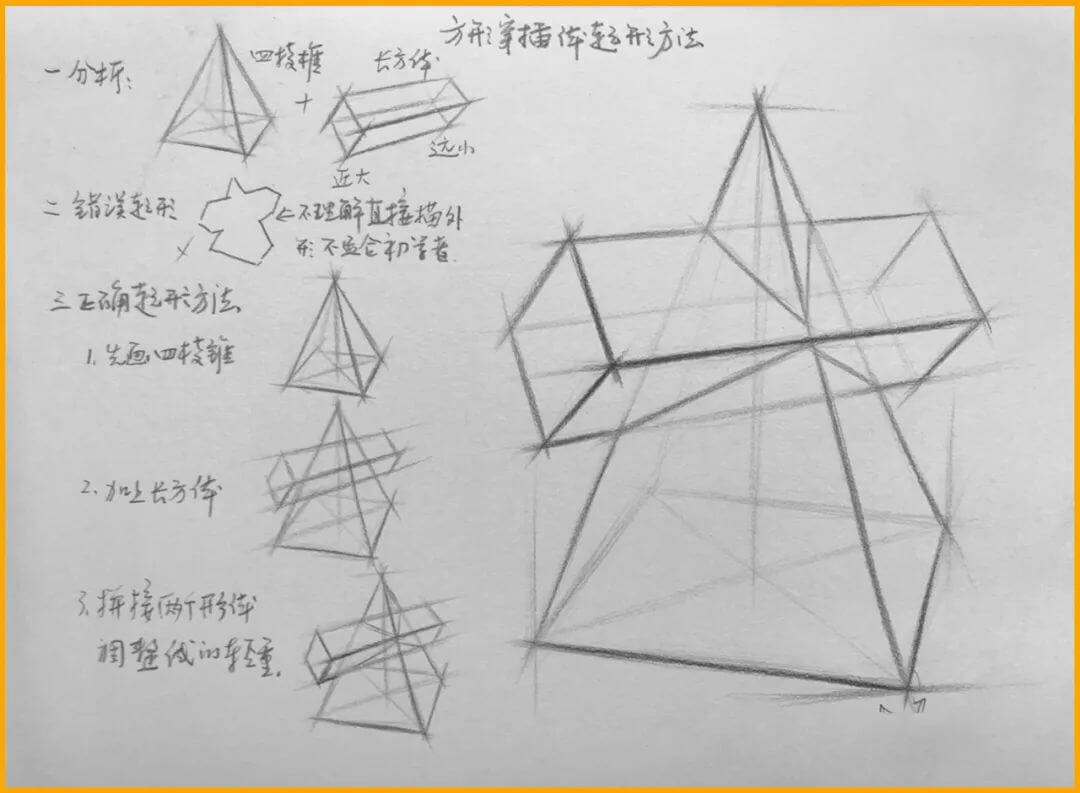 方形穿插体起形方法
一分析:
四棱椎
+
长方体
近大
远小
二 错误起形
×
←不理解直接描外
形不适合初学者.
三正确起形方法
1.先画四棱锥
2.加上长方体
3.拼接两个形体
调整线的轻重.